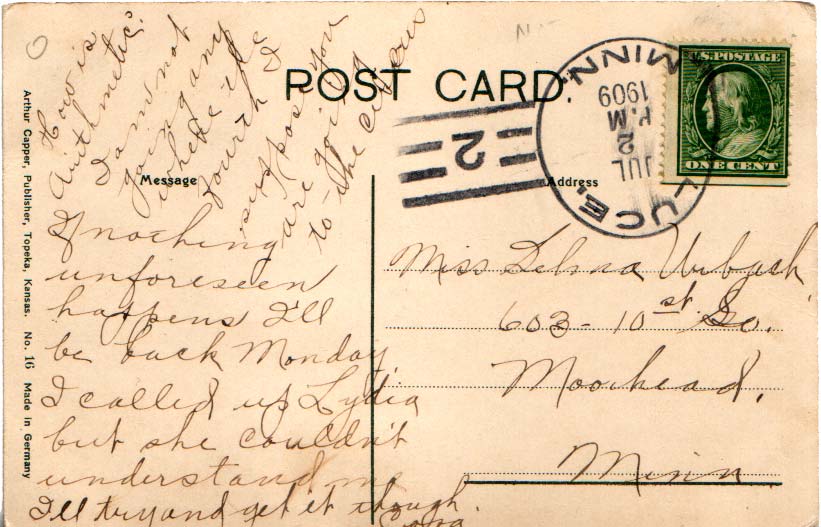 How is
Arithmetic?
I am not
going any
where the
fourth I
suppose you
are going
to the circus
POST CARD.
Message
Address
If nothing
unforeseen
happens I'll
be back Monday
I called up Lydia
but she couldn't
understand me
I'll try and get it though.
Miss Selma
603 - 10th St So.
Moorhead,
Minn.
LUCE, MINN.
JUL
2
P.M
1909
2
U.S. POSTAGE
ONE CENT
Arthur Capper, Publisher, Topeka, Kansas. No. 16 Made in Germany